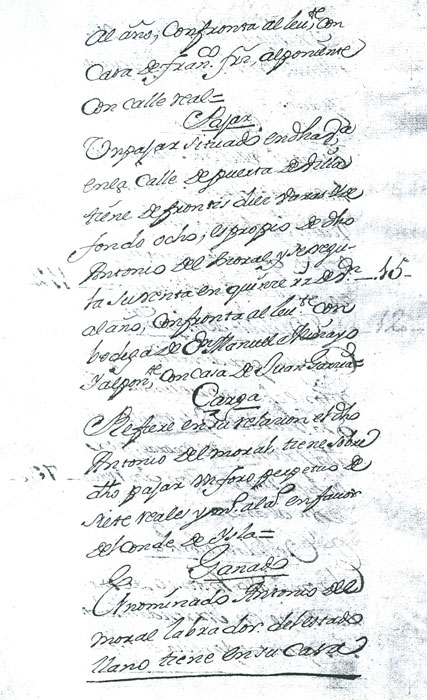 al año, Confronta al lev.te con
Casa de fran.co frz, alponiente
Con calle real=
Pajar
Un pajar situado en dha v.a
en la Calle de puerta de Villa
tiene de frontis diez varas y de
fondo ocho, es propio de dho
Antonio del moral, y se regu-
la su renta en quince r.s de v.n 15-
al año, Confronta al lev.te con
bodega de D.n Manuel
Y alpon.te, con casa de Juan Garcia=
Carga
Refiere en su relacion el dho
Antonio del moral, tiene sobre
dho pajar un foro perpetuo de
siete reales y m.o al a.o en favor
del conde de
Ganado
El nominado Antonio del
moral labrador del estado
llano tiene en su Casa